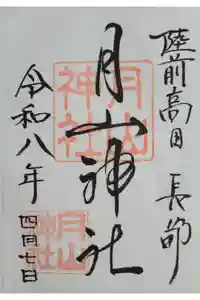 陸前高田 長部
月山神社
令和八年
四月七日
月山
神社
月山